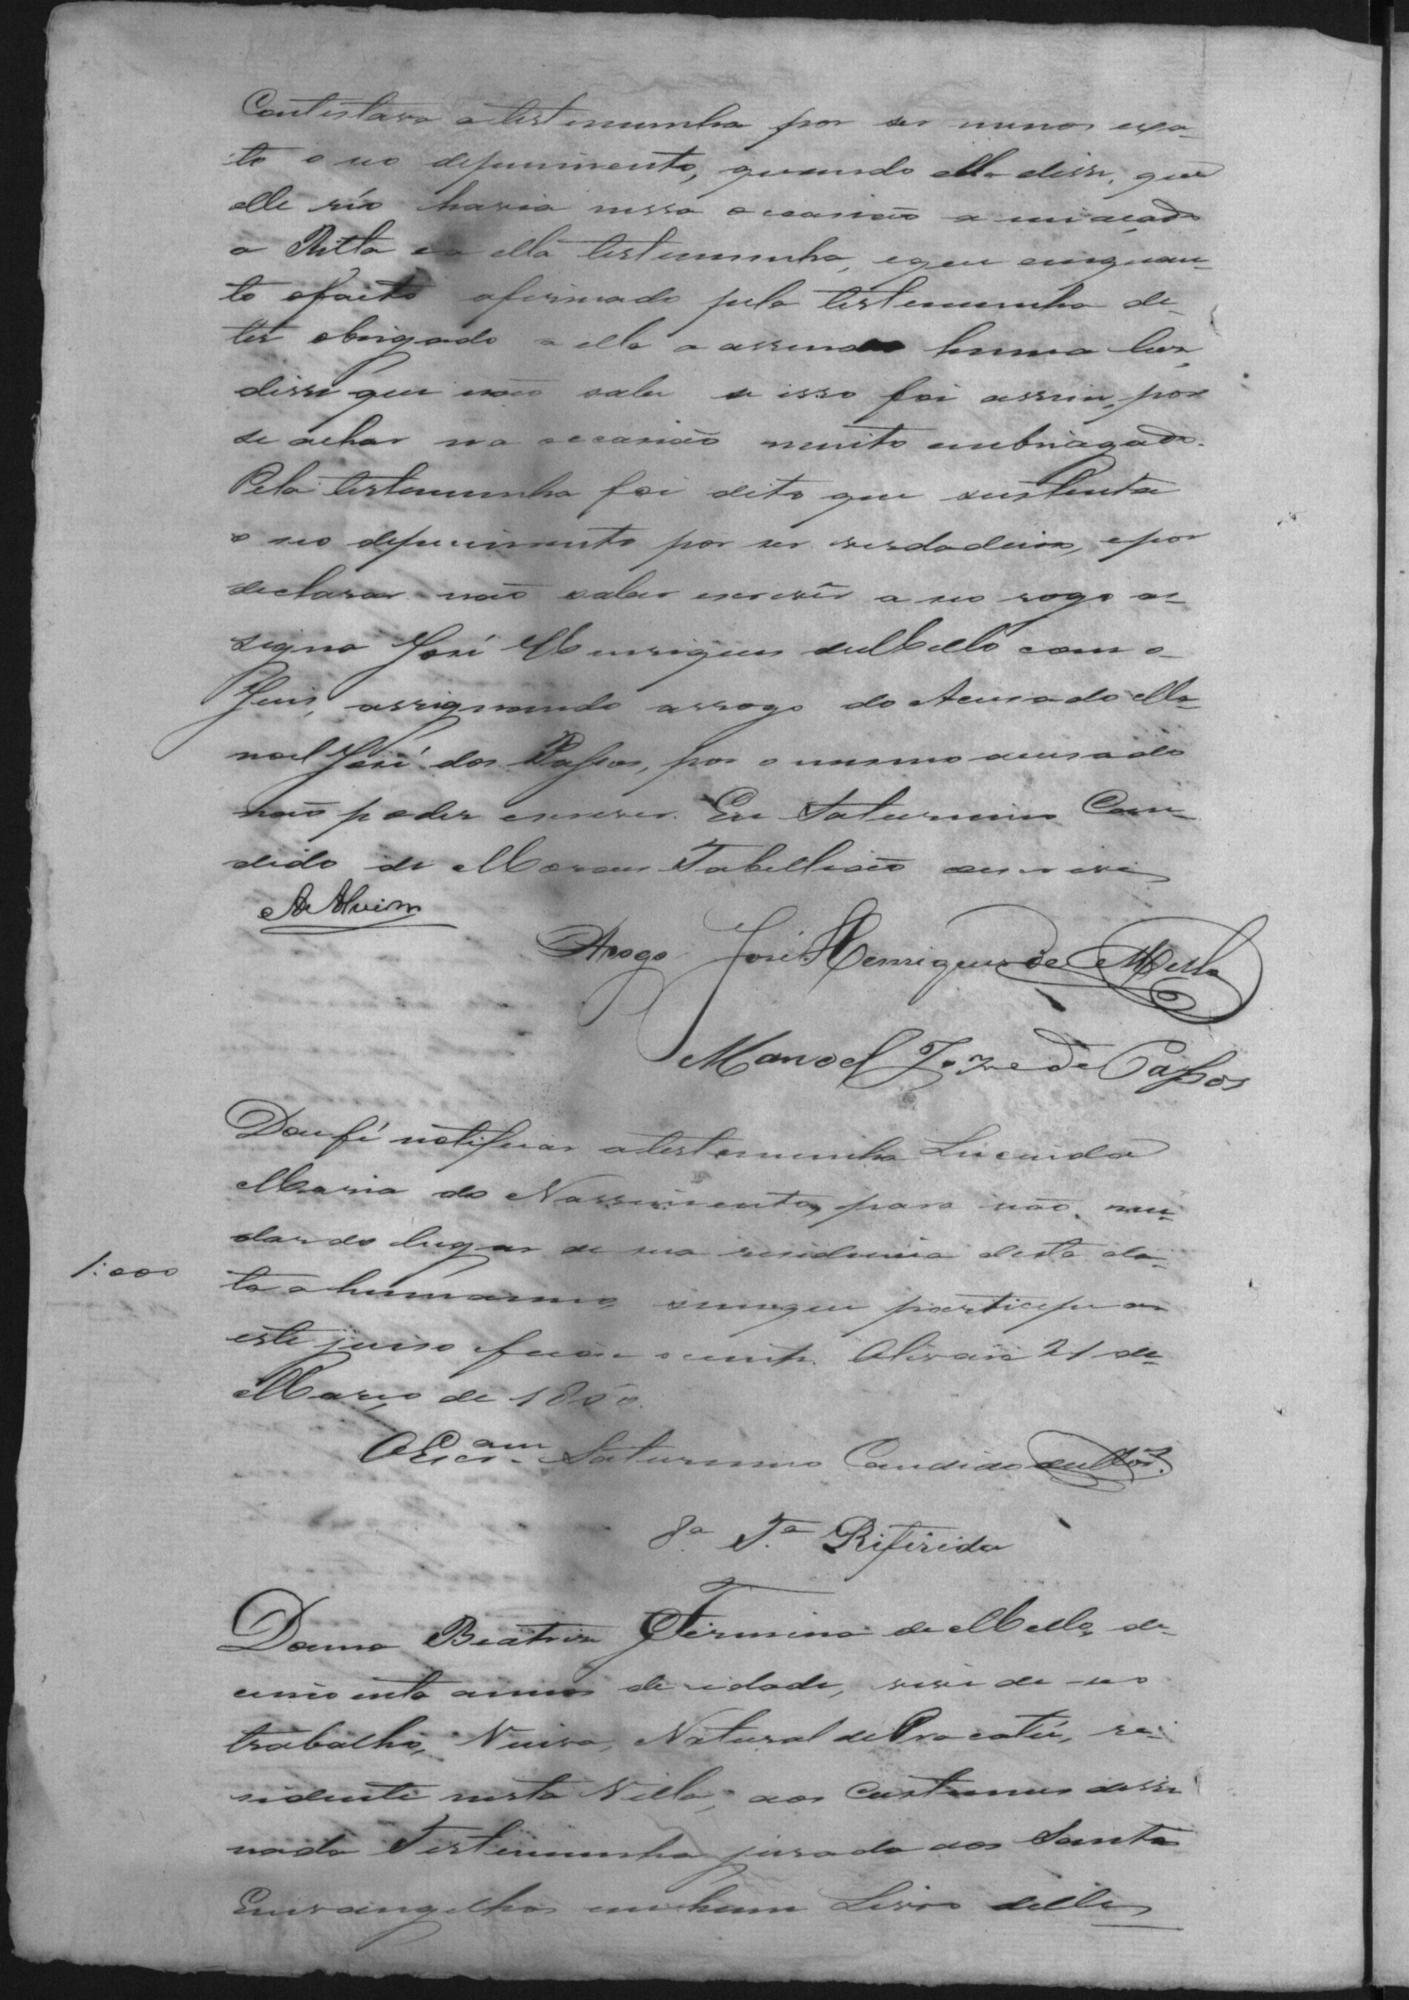 Contestava a testemunha por ser menos exa-
to o seo depuimento, quando ella disse, que
elle reo havia nessa occasião ameaçado
a Ritta e a ella testemunha, e que emquan-
to ofaito afirmado pela testemunha de
ter obrigado a ella a assender huma lus,
disse que não sabe se isso foi assim, por
se achar na occasião muito embriagado.
Pela testemunha foi dito que sustenta
o seo depuimento por ser verdadeiro, epor
declarar não saber escrever a seo rogo as-
signa José Henriques de Mello com o
Juis, assignando arrogo do Acusado Ma-
noel José dos Passos, por o mesmo acusado
não poder escrever. Eu Saturnino Can-
dido de Moraes Tabellião escrevi
A. Alvim
Arogo José Henriques de Mello
Manoel Joze de Passos
Dou fé notificar a testemunha Lucinda
Maria do Nascimento, para não mu-
dar do lugar de sua residencia desta da-
ta a hum anno, sem que participe a
1:000
este juiso
21 de
Março de
O Escr.am Saturnino Candido de Mor.
8ª Tª Referida
Donna Beatris Fermina de Mello, de
cincoenta annos de idade, vive de seo
trabalho, Viuva, Natural de Pracatú, re-
sidente nesta Villa, aos custumes disse
nada Testemunha jurada aos Santos
Euvangelhos em hum Livro delles